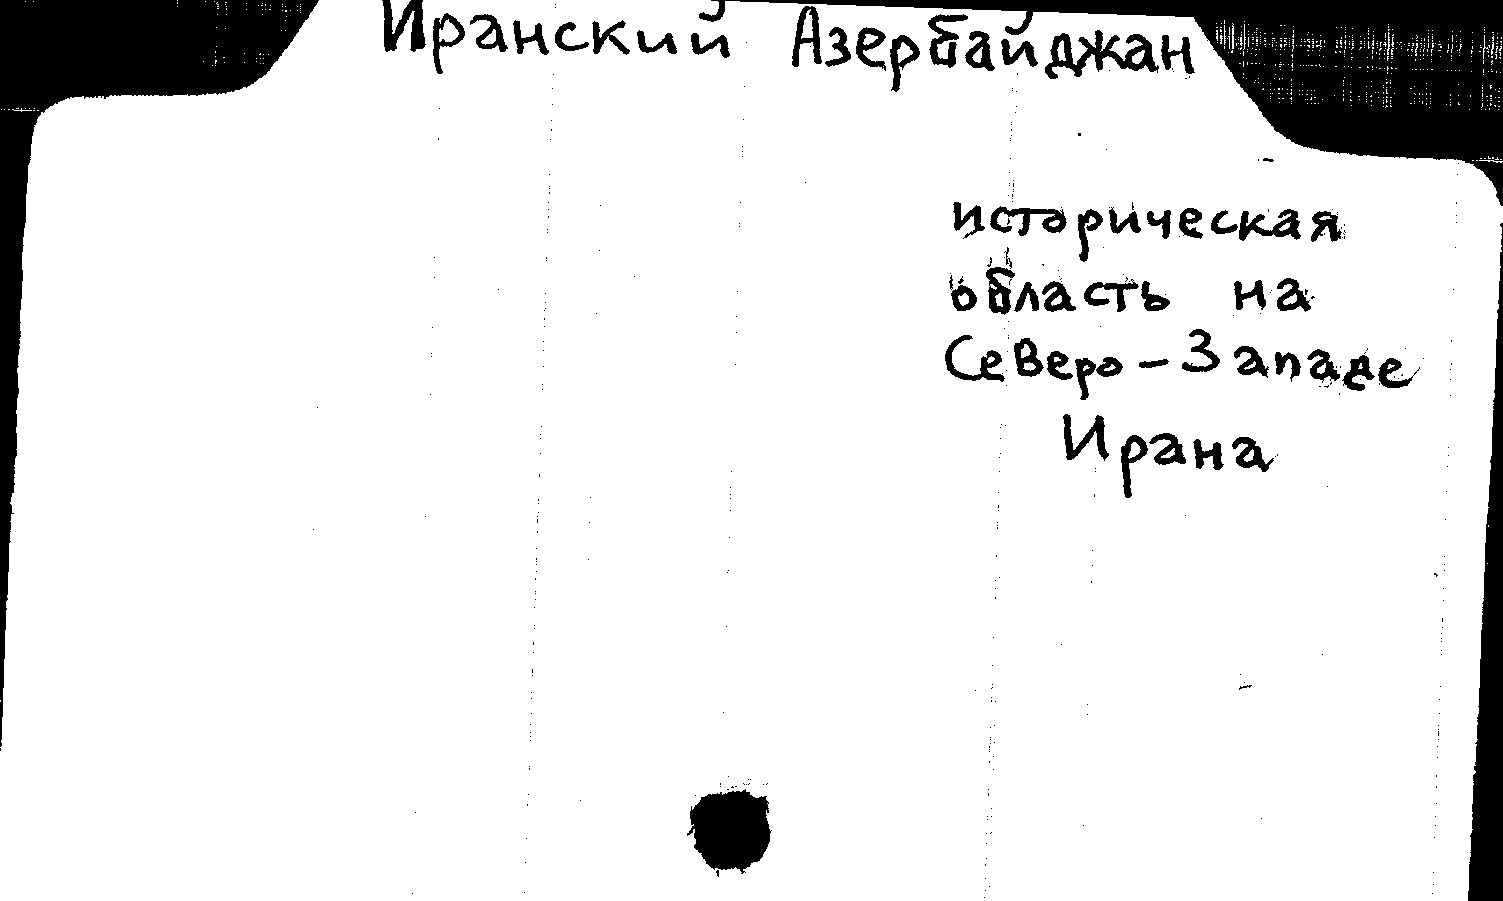 Иранский Азербайджан
историческая
область на
Северо-Западе
Ирана